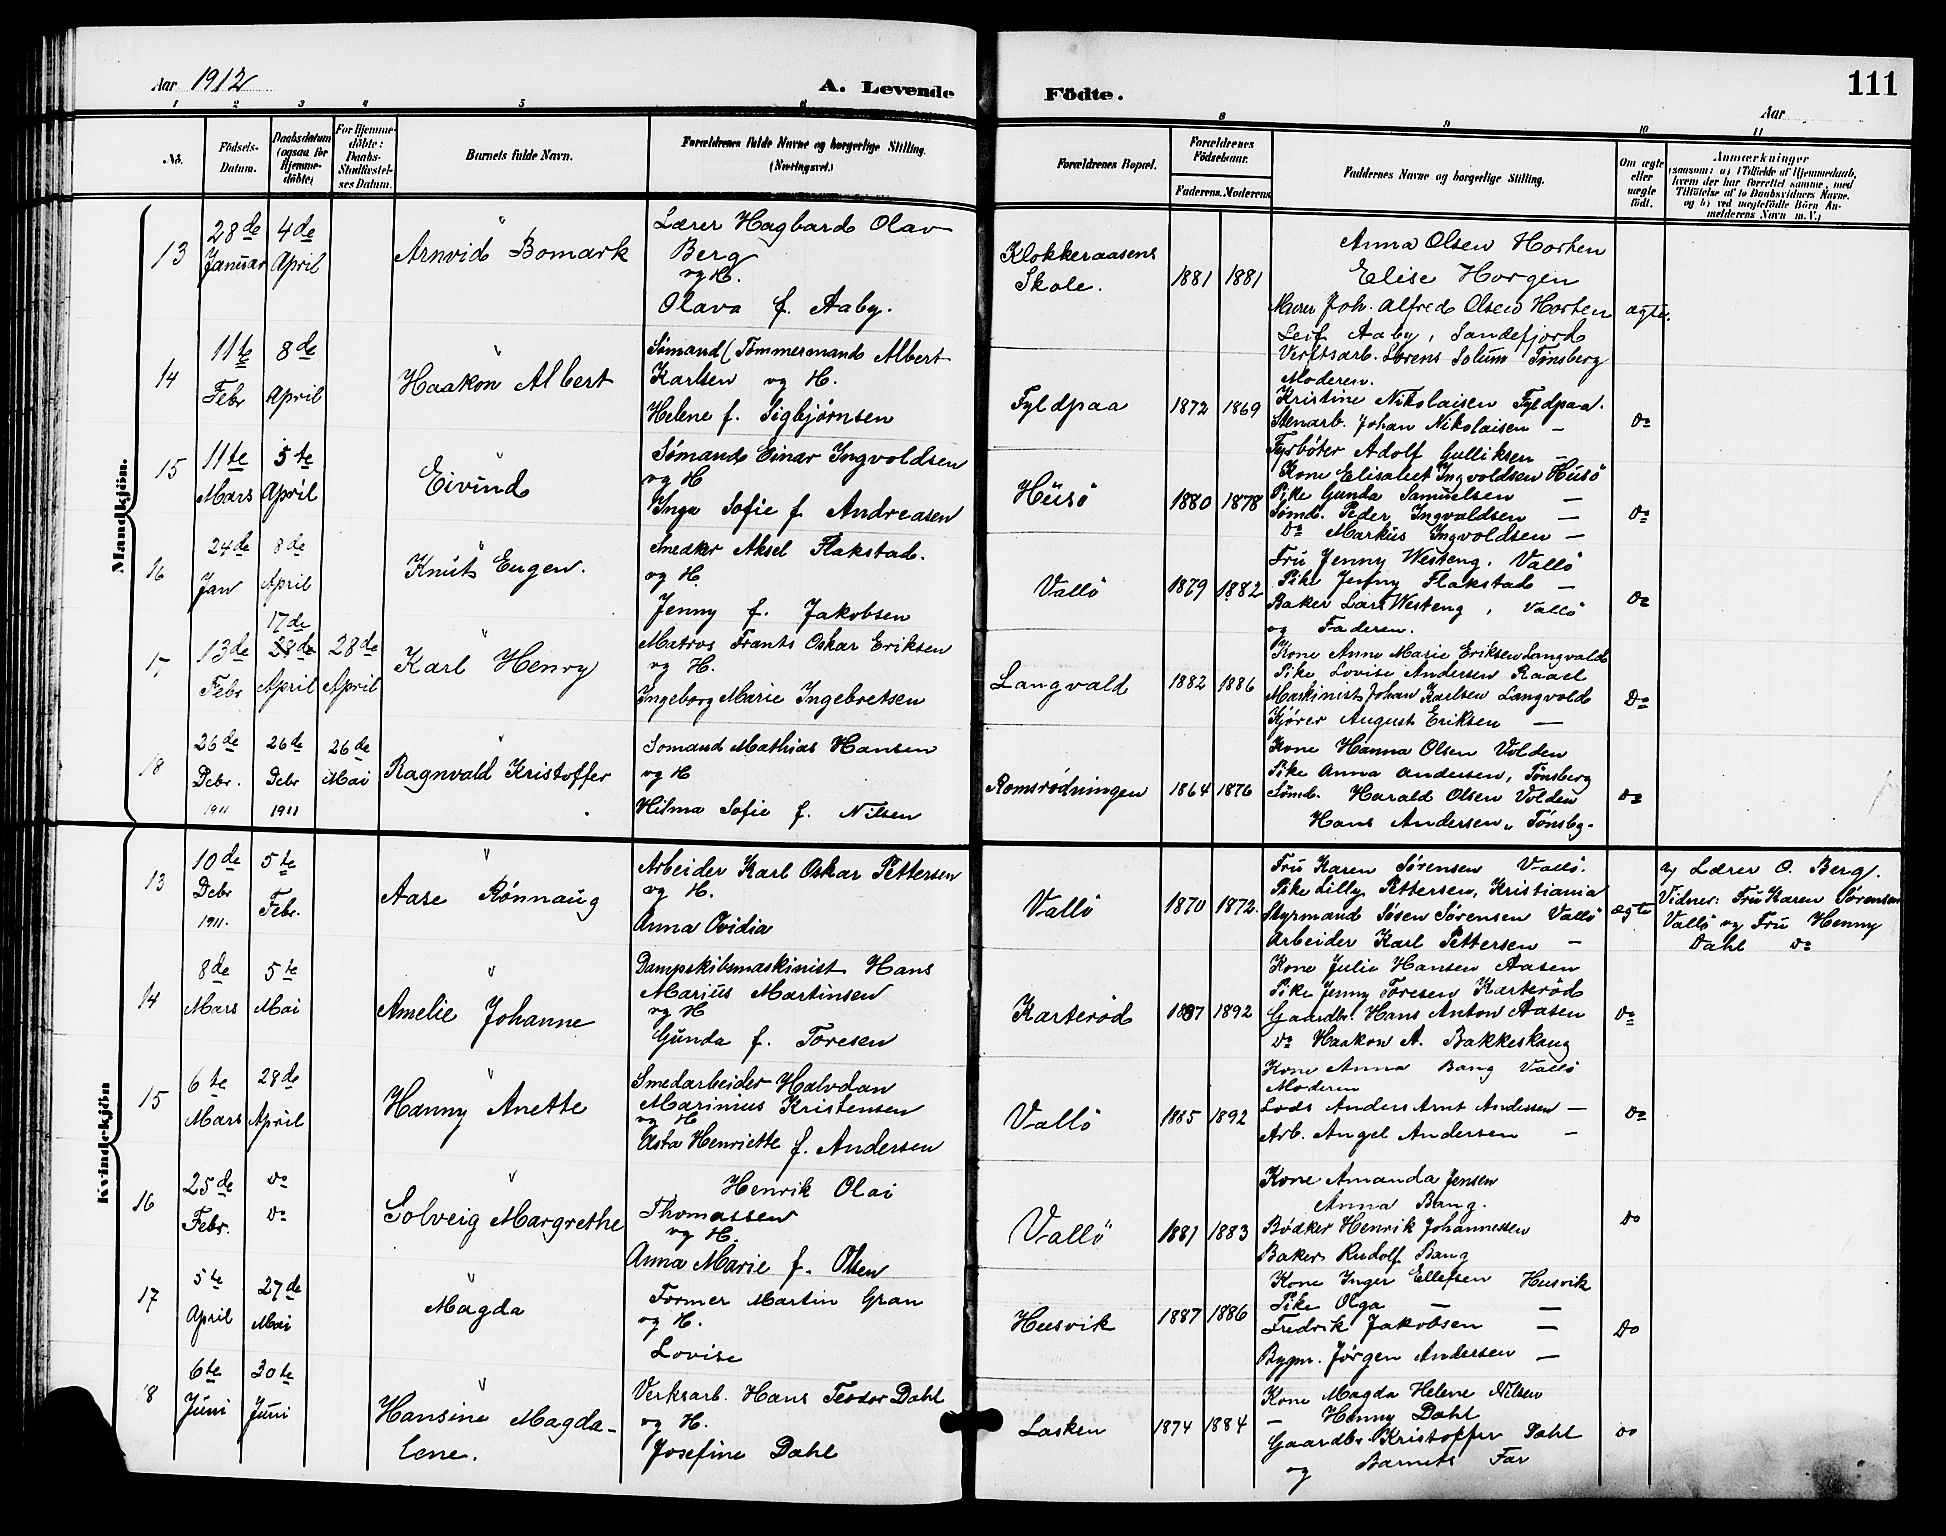 Aar 1912
A. Levende Födte.
111
Aar
1 2 3 4 5 6 8 9 10 11
No.
Födsels-Datum.
Daabsdatum (ogsaa for Hjemme-döbte)
For Hjemme-döbte: Daabs-Stadfæstel-ses Datum.
Barnets fulde Navn.
Forældrenes fulde Navne og borgerlige Stilling. (Næringsvei.)
Forældrenes Bopæl.
Forældrenes Födselsaar.
Faderens. Moderens.
Faddernes Navne og borgerlige Stilling.
Om ægte eller uægte födt.
Anmærkninger
(saasom: a) i Tilfælde af Hjemmedaab, hvem der har forrettet samme, med Tilföielse af to Daabsvidners Navne. og b) ved uægtefödte Börn Anmelderens Navn m. V.)
Mandkjön.
13
28de Januar
4de April
Arnvid Bomark
Lærer Hagbard Olav
Berg
og H.
Olava f. Aaby.
Klokkeraasens
Skole.
1881 1881
Anna Olsen Horten
Elise Horgen
Murer Joh. Alfred Olsen Horten
Leif Aaby, Sandefjord
ægte.
14
11te Febr
8de April
Haakon Albert
Sømand (Tømmermand Albert
Karlsen og H.
Helene f. Sigbjørnsen
Fyldpaa
1872 1869
Verftsarb. Sørens Solum Tønsberg
Moderen.
Kristine Nikolaisen Fyldpaa.
Stenarb. Johan Nikolaisen —
Do
15
11te Mars
5te April
Eivind
Sømand Einar Ingvoldsen
og H
Inga Sofie f Andreasen
Husö
1880 1878
Fyrbøter Adolf Gulliksen —
Kone Elisabet Ingvoldsen Husö
Pike Gunda Samuelsen —
Sømd. Peder Ingvaldsen —
Do Markus Ingvoldsen —
Do
16
24de Jan
8de April
Knut Eugen.
Snedker Aksel Flakstad.
og H
Jenny f. Jakobsen
Vallö
1879 1882
Fru Jenny Westeng, Vallö
Pike Jenny Flakstad —
Baker Lars Westeng, Vallö
og Faderen.
Do
17
13de Febr
17de
28de April
28de April
Karl Henry
Matros Frants Oskar Eriksen
og H.
Ingeborg Marie Ingebretsen
Langvald
1882 1886
Kone Anne Marie Eriksen Langvald
Pike Lovise Andersen Raael
Maskinist Johan Karlsen Langvold
Kjører August Eriksen —
Do
18
26de Debr. 1911
26de Debr 1911
26de Mai
Ragnvald Kristoffer
Sømand Mathias Hansen
og H
Hilma Sofie f. Nilsen
Romsrødningen
1864 1876
Kone Hanna Olsen Volden
Pike Anna Andersen, Tönsberg
Sömd. Harald Olsen Volden
Hans Andersen, Tönsbg.
Do
Kvindekjön
13
10de Debr 1911.
5te Febr.
Aase Rønnaug
Arbeider Karl Oskar Pettersen
og H.
Anna Ovidia
Vallö
1870 1872.
Fru Karen Sørensen Vallö.
Pike Lilly Pettersen, Kristiania
Styrmand Søren Sørensen Vallö
Arbeider Karl Pettersen —
ægte
a) Lærer O. Berg.
Vidner: Fru Karen Sørensen
Vallö og Fru Henny
Dahl do
14
8de Mars
5te Mai
Amelie Johanne
Dampskibsmaskinist Hans
Marius Martinsen
og H
Gunda f. Toresen
Karterød
1887 1892
Kone Julie Hansen Aasen
Pike Jenny Toresen Karterød
Gaardbr. Hans Anton Aasen
Do Haakon A. Bakkeskaug
Do
15
6te Mars
28de April
Hanny Anette
Smedarbeider Halvdan
Marinius Kristensen
og H
Asta Henriette f. Andersen
Vallö
1885 1892
Kone Anna Bang Vallö
Moderen
Lods Anders Arnt Andersen —
Arb. Angel Andersen —
Do
16
25de Febr.
Do Do
Solveig Margrethe
Henrik Olai
Thomassen
og H.
Anna Marie f. Olsen
Vallö
1881 1883
Kone Amanda Jensen
Anna Bang.
Bødker Henrik Johannessen
Baker Rudolf Bang
Do
17
5te April
27de Mai
Magda
Former Martin Gran
og H.
Lovise
Husvik
1887 1886
Kone Inger Ellefsen Husvik
Pike Olga — —
Fredrik Jakobsen —
Bygm. Jørgen Andersen —
Do
18
6te Juni
30te Juni
Hansine Magda-
lene.
Verksarb. Hans Teodor Dahl
og H.
Josefine Dahl
Lasken
1874 1884
Kone Magda Helene Nilsen
— Henny Dahl
Gaardbr Kristoffer Dahl
og Barnets Far
Do